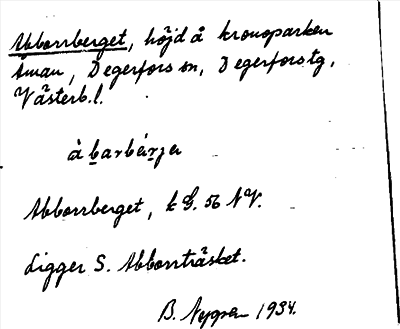 Abborrberget, höjd å kronoparken
Åman, Degerfors sn, Degerfors tg,
Västerb. l.
àbarbérjer
Abborrberget, k G. 56 NV.
Ligger S. Abborrträsket.
B. 1934.